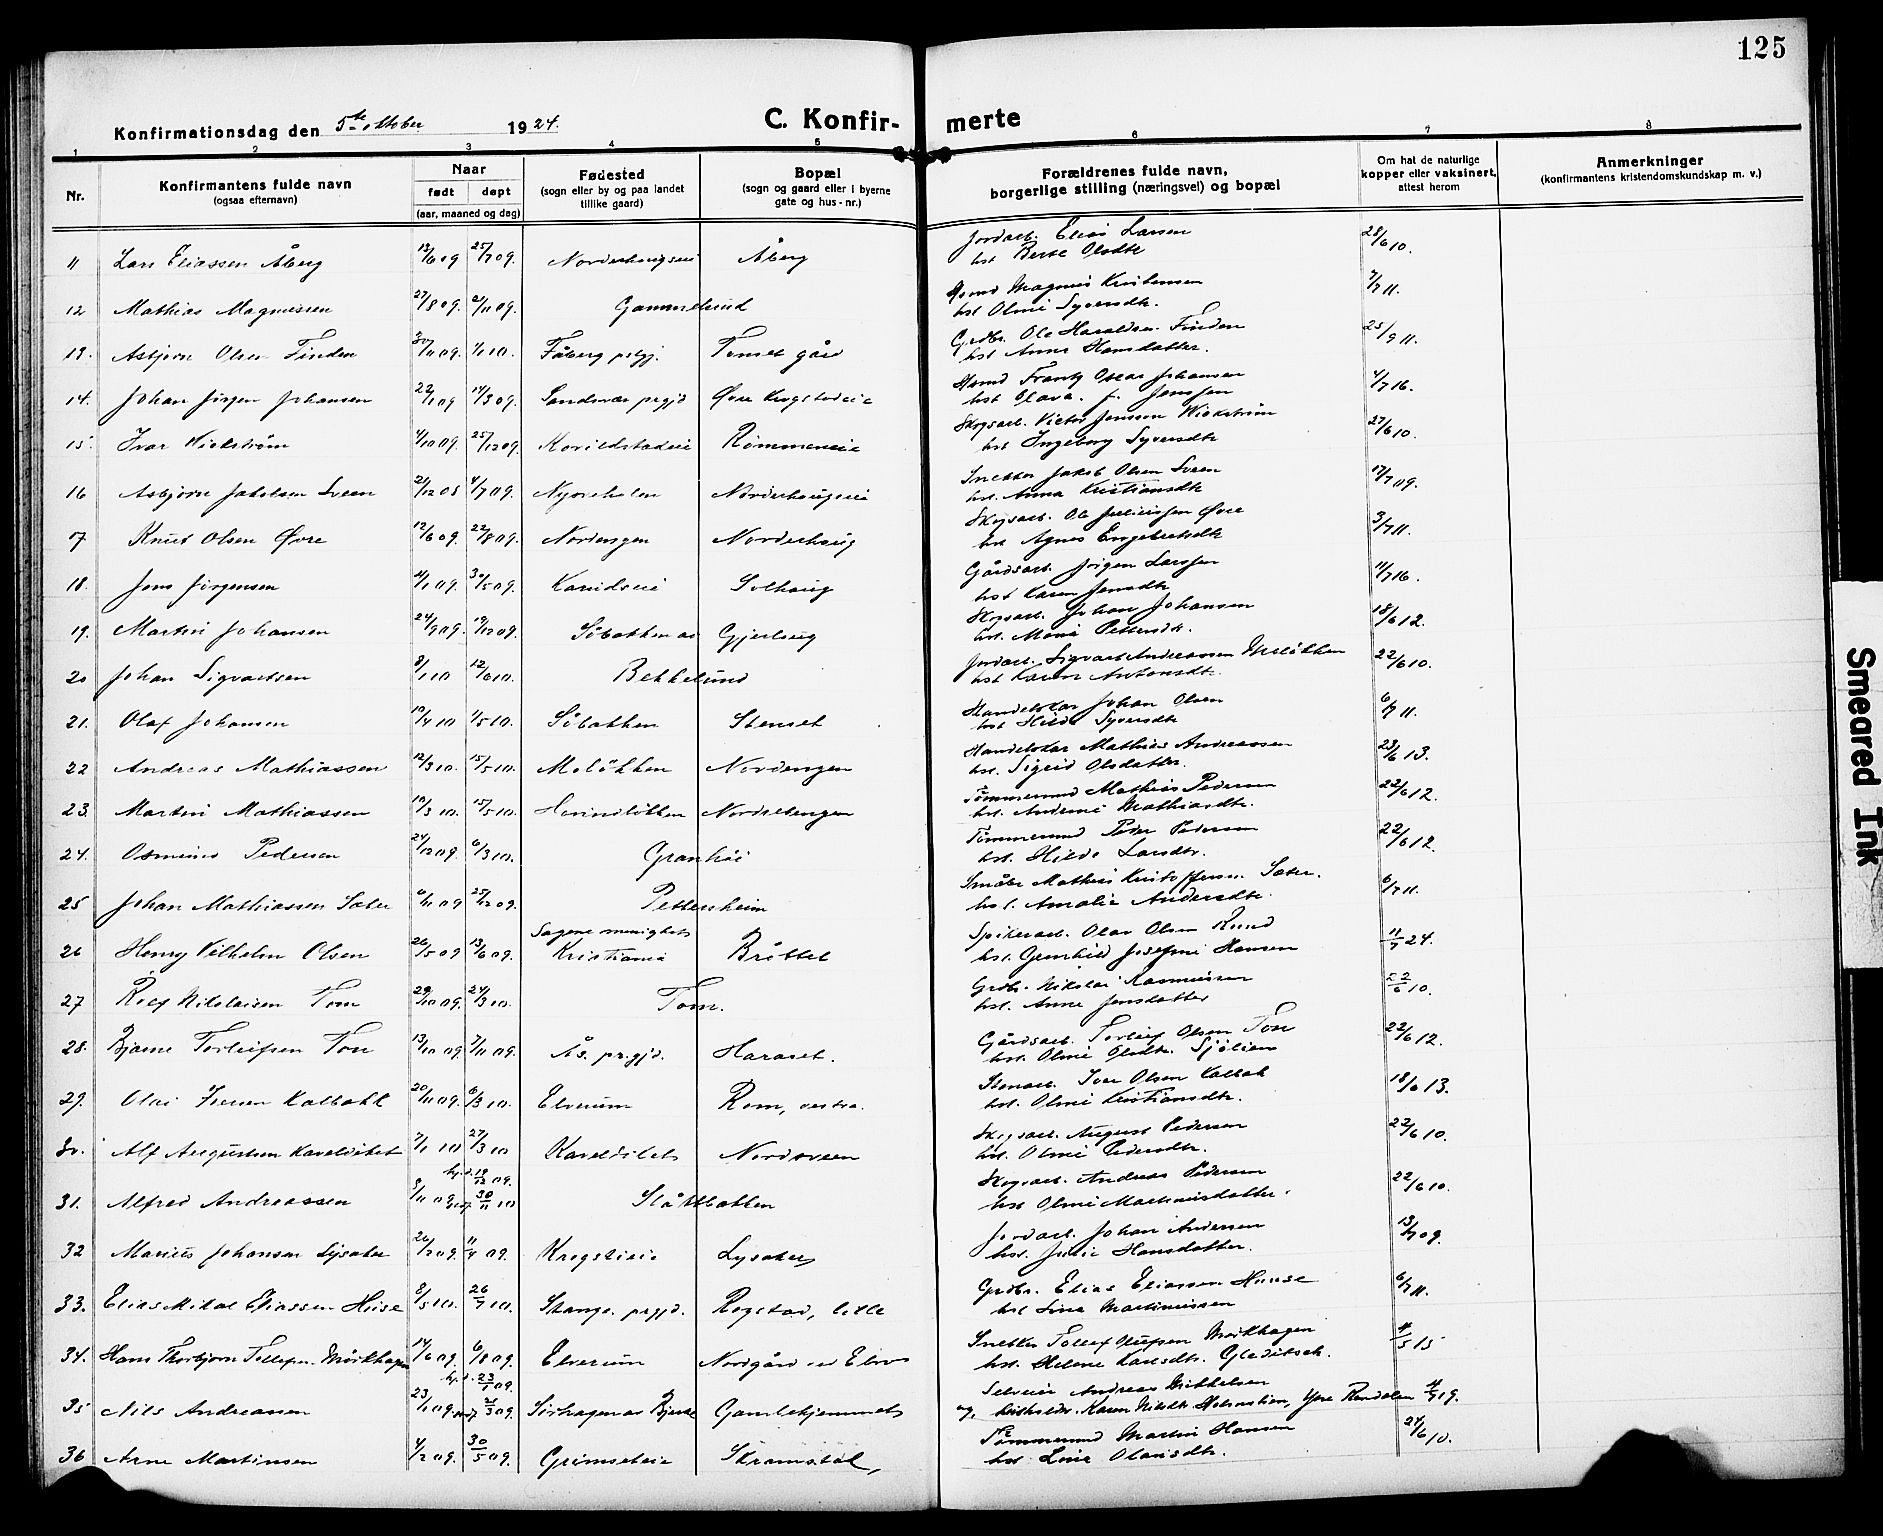 125
Konfirmationsdag den 5te oktober 1924.
C. Konfir- merte
1 2 3 4 5 6 7 8
Nr.
Konfirmantens fulde navn
(ogsaa efternavn)
Naar
født døpt
(aar, maaned og dag)
Fødested
(sogn eller by og paa landet
tillike gaard)
Bopæl
(sogn og gaard eller i byerne
gate og hus-nr.)
Forældrenes fulde navn,
borgerlige stilling (næringsvei) og bopæl
Om hat de naturlige
kopper eller vaksinert,
attest herom
Anmerkninger
(konfirmantens kristendomskundskap m. v.)
11 Lars Eliassen Åberg 13/6 09 25/7 09. Norderhaugseie Åberg Jordarb. Elias Larsen 28/6 10.
hst Berte Olsdtr
12 Mathias Magnussen 27/8 09. 2/11 09. Gammelsrud Magnus Kristensen 7/7 11.
hst. Oline Syversdtr.
13. Asbjørn Olsen Finden 1/1 10. Fåberg prgj. Tomset gård Grdbr. Ole Haraldsen Finden 25/9 11.
hst Anne Hansdatter.
14. Johan Jørgen Johansen 22/1 09 14/3 09. Sandsvær prgjd Øvre Krogstadeie Frantz Oscar Johansen 4/7 16.
hst Olava f. Jenssen
15 Ivar Wickstrøm 4/10 09. 25/12 09. Korildstadeie Rømmeneie Skogsarb. Victor Jensson Wickstrøm 27/6 10.
hst Ingeborg Syversdtr
16 Asbjørn Jakobsen Sveen 21/12 08 4/7 09. Norderhaugseie Snekker Jakob Olsen Sveen 17/7 09.
hst. Anna Kristiansdtr
17 Knut Olsen Øvre 12/6 09. 22/8 09. Nordengen Norderhaug Skogsarb. Ole Juliussen Øvre 3/7 11.
hst Agnes Engebretsdtr
18. Jens Jørgensen Solhaug Gårdsarb. Jørgen Larssen 11/7 16.
hst Karen Jensdtr
19. Martin Johansen 24/9 09. 19/12 09. Søbakken av Gjerlaug Skogsarb. Johan Johansen 18/6 12.
hst. Marie Pettersdtr.
20 Johan Sigvartsen 8/1 10 12/6 10. Bekkelund Jordarb. Sigvart Andreassen Meløkken 22/6 10.
hst Karen Antonsdtr.
21. Olaf Johansen 10/4 10 1/5 10. Søbakken Stenset Handelskar Johan Olsen 6/7 11.
hst Hilda Syversdtr
22 Andreas Mathiassen 12/3 10. 15/5 10. Meløkken Nordengen Handelskar Mathias Andreassen 23/6 13.
hst. Sigrid Olsdatter.
23. Martin Mathiassen 10/3 10. 15/5 10. Horindløkken Nordsetengen Tømmermand Mathias Pedersen 22/6 12.
hst. Andrine Mathiasdtr.
24. Osmund Pedersen 24/12 09. 6/3 10. Granhøi Tømmermand Peder Pedersen 22/6 12.
hst. Hilda Larsdtr.
25 Johan Mathiassen Sæter 6/11 09 25/12 09. Pettersheim Småbr. Mathias Kristoffersen Sæter. 6/7 11.
hst. Amalie Andersdtr.
26 Henry Vilhelm Olsen 26/5 09 13/6 09. Sagene menighet Kristiania Bråttet Spikerarb. Olav Olsen Rund 11/7 24.
hst. Gunhild Josefine Hansen
27 Rolf Nikolaisen Tom 29/10 09. 24/3 10. Tom. Grdbr. Nikolai Rasmussen 22/6 10.
hst. Anne Jensdatter
28. Bjarne Torleifsen Ton 13/10 09. 7/11 09. Ås. prgjd. Haraset. Gårdsarb. Torleif Olsen Ton 22/6 12.
hst. Oline Olsdtr. Sjølien
29. Olai Iversen Kalbakk 20/11 09. 6/3 10. Elverum Rom, vestre. Stenarb. Iver Olsen Kalbak 18/6 13.
hst. Oline Kristiansdtr.
30. Alf Augustsen Kaveldilet 7/1 10 27/3 10 Kaveldilet Nordsveen Skogsarb. August Pedersen 22/6 10.
hst. Oline Pedersdtr.
31. Alfred Andreassen 3/11 09 hjd. 19/12 09. 30/11 10 Slåttbakken Skogsarb. Andreas Pedersen 22/6 10.
hst Oline Martinusdatter.
32 Marius Johansen Lysaker 26/2 09. 11/4 09. Krogstieie Lysaker Jordarb. Johan Andersen 13/7 09.
hst. Julie Hansdatter.
33. Elias Mikal Eliassen Huse 8/5 10. 26/7 10. Stange. prgjd. Rogstad, lille Grdbr. Elias Eliassen Huuse 6/7 11.
hst Lina Martinussen
34. Hans Thorbjørn Tollefsen Mørkhagen 14/6 09. 6/8 09. Elverum Nordgård Snekker Tollef Olufsen Mørkhagen 4/5 15
hst. Helene Karlsdtr. Gleditsch.
35 Nils Andreassen 23/1 09. hjd. 23/1 09. Sørhagen av Bjerke Gamlehjemmet Selveier Andreas Mikkelsen
og Karen Nilsdtr Holmstien, Ytre Rendalen 4/7 19.
36 Arne Martinsen 4/2 09. 30/5 09. Grimseteie Skramstøl, Tømmermand Martin Hansen 27/6 10.
hst Lina Olausdtr.
Smeared Ink